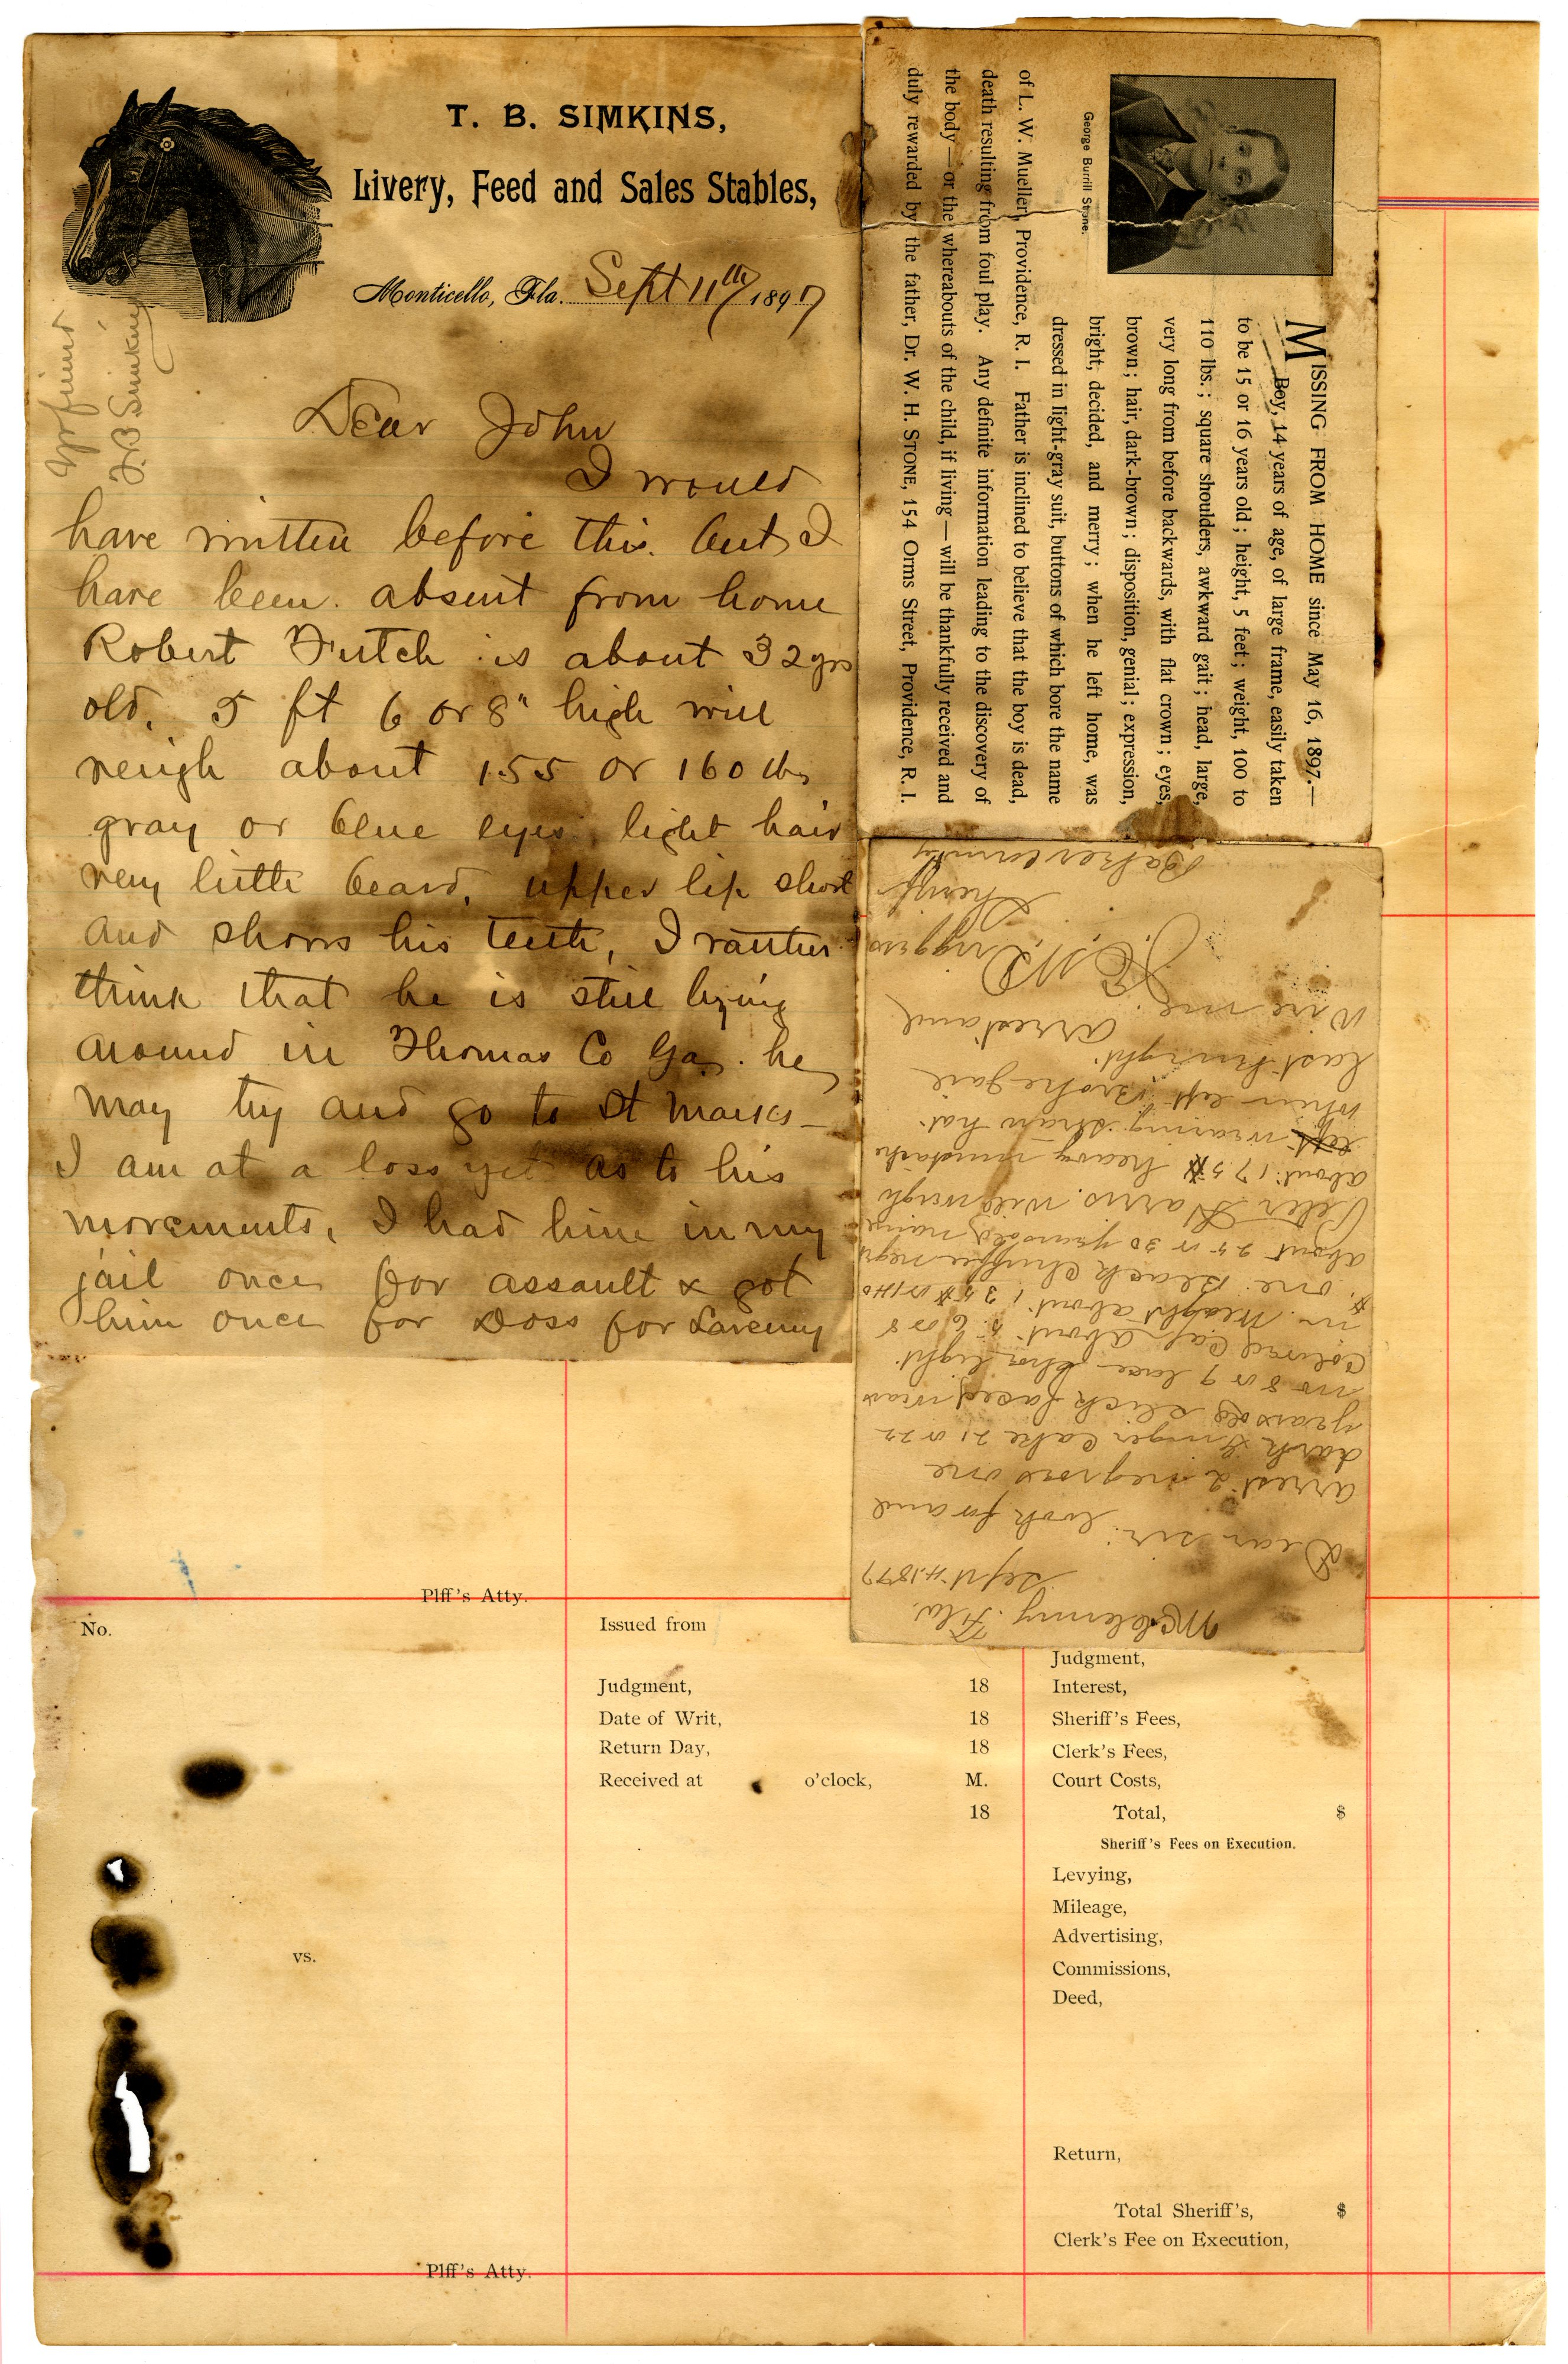 T. B. SIMKINS,
Livery, Feed and Sales Stables,
Monticello, Fla. Sept 11th 1897
Dear John
I would
have written before this. but I
have been. absent from home
Robert Futch is about 32 yrs
old. 5 ft 6 or 8" high will
weigh about 155 or 160 lbs
gray or blue eyes, light hair
very little beard, upper lip short
and shows his teeth, I rauther
think that he is still lying
around in Thomas Co Ga. he
may try and go to St Marks—
I am at a loss yet as to his
movements, I had him in my
jail once for assault & got
him once for Doss for Larceny
Yor friend
T.B Simkins
George Burrill Stone.
MISSING FROM HOME since May 16, 1897.—
Boy, 14 years of age, of large frame, easily taken
to be 15 or 16 years old; height, 5 feet; weight, 100 to
110 lbs.; square shoulders, awkward gait; head, large,
very long from before backwards, with flat crown; eyes,
brown; hair, dark-brown; disposition, genial; expression,
bright, decided, and merry; when he left home, was
dressed in light-gray suit, buttons of which bore the name
of L. W. Mueller, Providence, R. I. Father is inclined to believe that the boy is dead,
death resulting from foul play. Any definite information leading to the discovery of
the body—or the whereabouts of the child, if living—will be thankfully received and
duly rewarded by the father, Dr. W. H. STONE, 154 Orms Street, Providence, R. I.
McClenny. Fla.
Sept. 4. 1897
Dear sir: look for and
arrest 2 negroes one
dark Ginger Cake 21 or 22
years old slick faced wears
no 8 or 9 lace shoe light
Colored Cap about 5. 6 or 8
in. Weight about 135# or 140
#. one Black negro
about 25 or 30 years old, name
Peter Harris. will weigh
about 175# heavy mustache
left wearing straw hat.
when left Broke jail
last knight.
Wire me. arrest and
J. E. W. Driggers
Sheriff
Baker county
Plff's Atty.
No.
Issued from
Judgment, 18
Date of Writ, 18
Return Day, 18
Received at o'clock, M.
18
Judgment,
Interest,
Sheriff's Fees,
Clerk's Fees,
Court Costs,
Total, $
Sheriff's Fees on Execution.
Levying,
Mileage,
Advertising,
Commissions,
Deed,
vs.
Return,
Total Sheriff's, $
Clerk's Fee on Execution,
Plff's Atty.